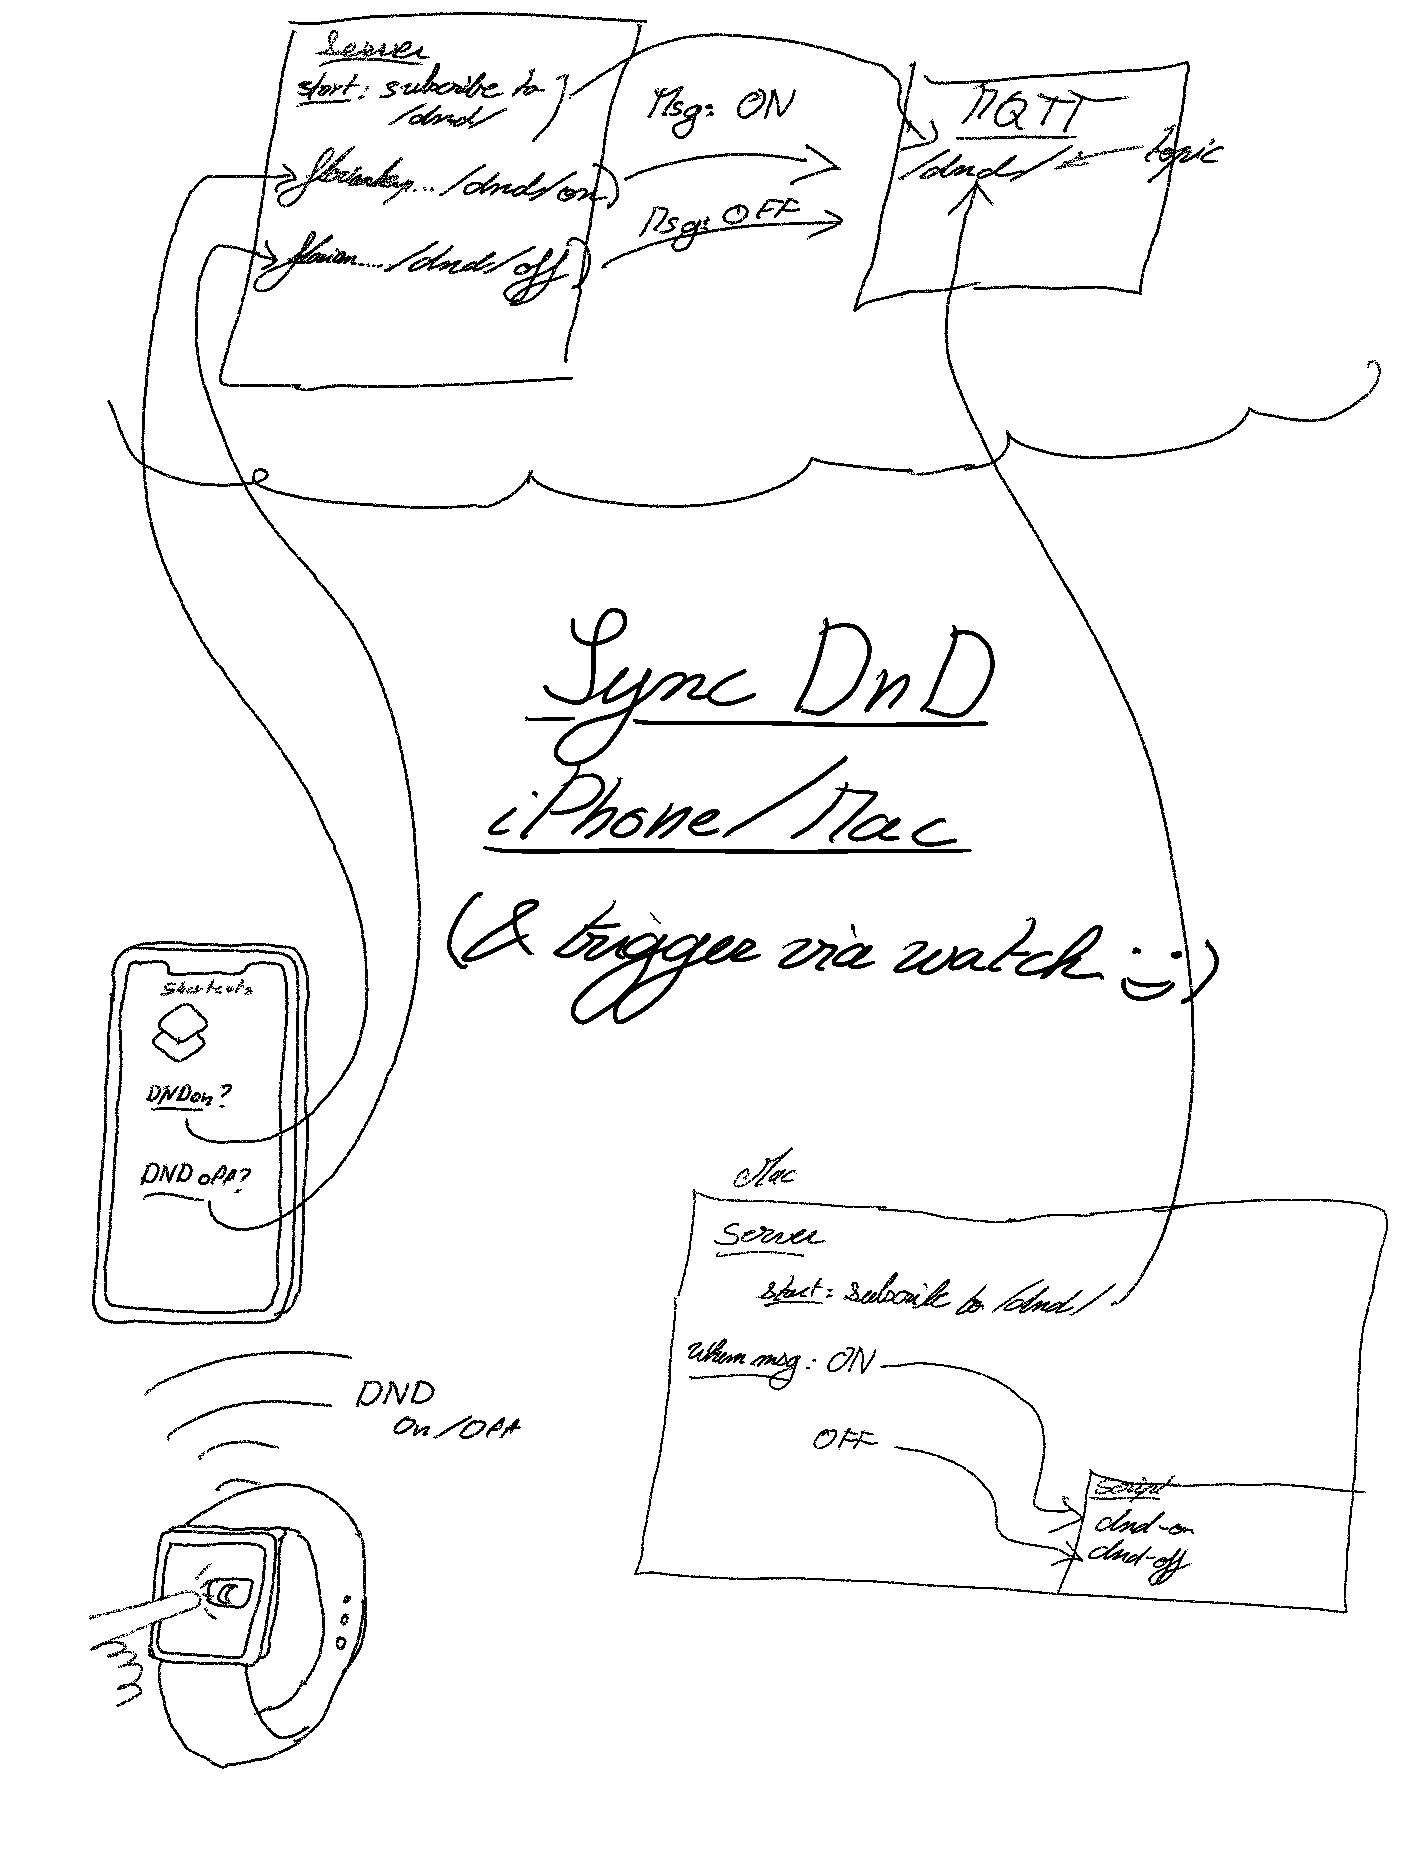 Server
start: subscribe to
/dnd/
/dnd/on
florian.... /dnd/off
Msg: ON
Msg: OFF
MQTT
/dnd/
topic
Sync DnD
iPhone/Mac
(& trigger via watch :))
Shortcuts
DND on?
DND off?
DND
On/Off
Mac
Server
start: subscribe to /dnd/
When msg: ON
OFF
Script
dnd-on
dnd-off